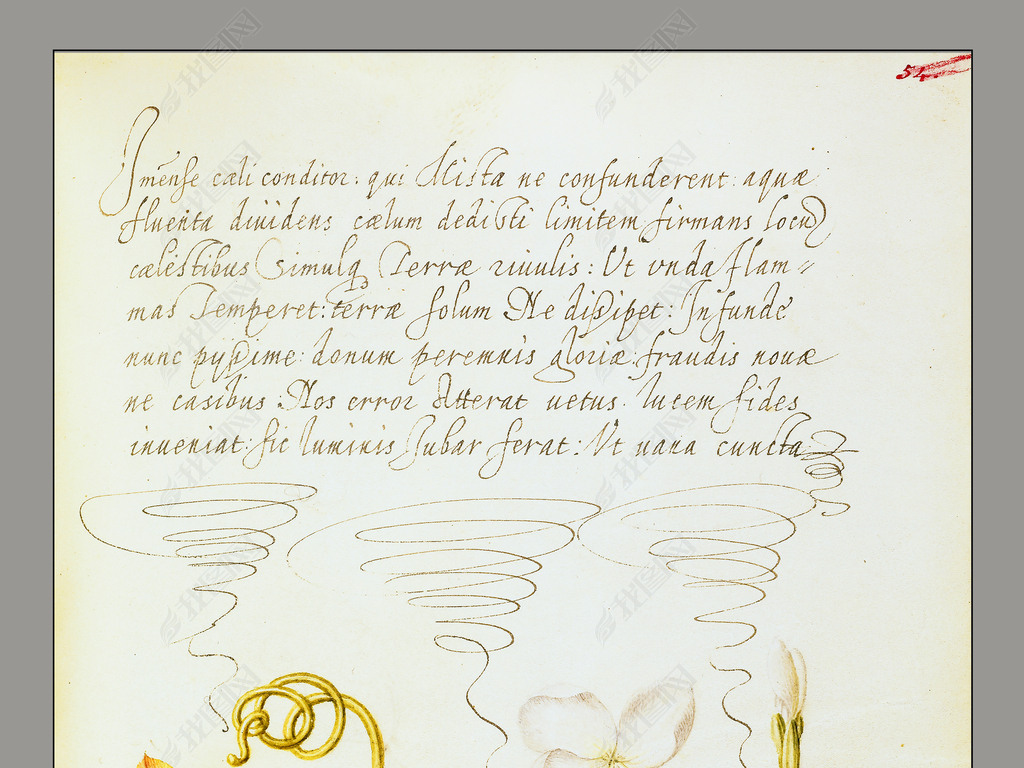 54.
Im̃ense cæli conditor: qui Mista ne confunderent: aquæ
fluenta diuidens cælum dedisti limitem firmans locũ
cælestibus Simulq Terræ riuulis: Ut vnda flam=
mas Temperet: terræ solum Ne dissipet: Infunde
nunc pyssime: donum peremnis gloriæ: fraudis nouæ
ne casibus: Nos error Atterat uetus. lucem fides
inueniat: sic luminis Jubar ferat: Vt uana cuncta
我图网